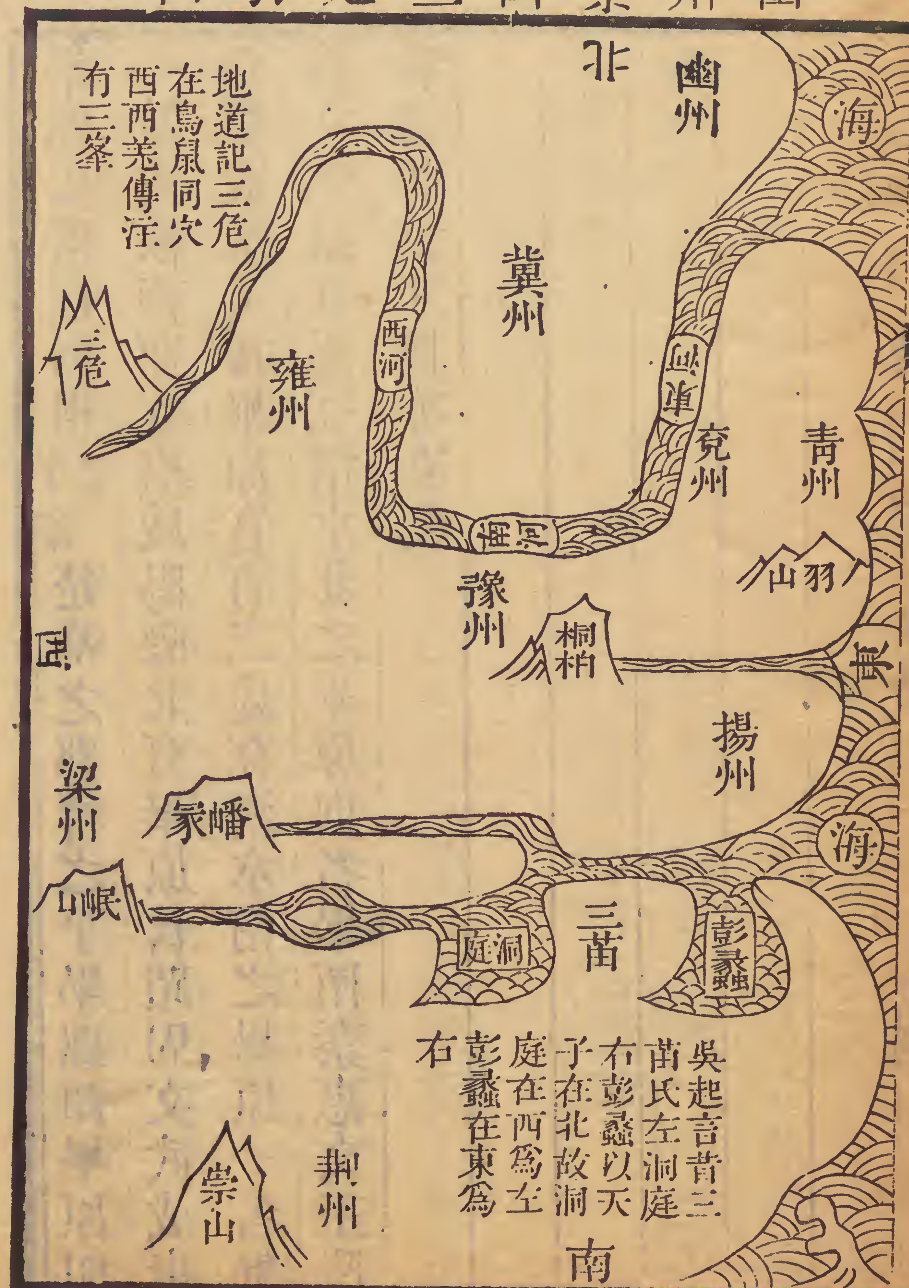 北
幽州
海
地道記三危
在鳥鼠同穴
西西羌傳注
有三峯
冀州
三危
西河
雍州
東河
兗州
青州
南河
羽山
豫州
桐柏
東
揚州
梁州
嶓冢
海
岷山
洞庭
三苗
彭蠡
吳起言昔三
苗氏左洞庭
右彭蠡以天
子在北故洞
庭在西爲左
彭蠡在東爲
右
崇山
荆州
南